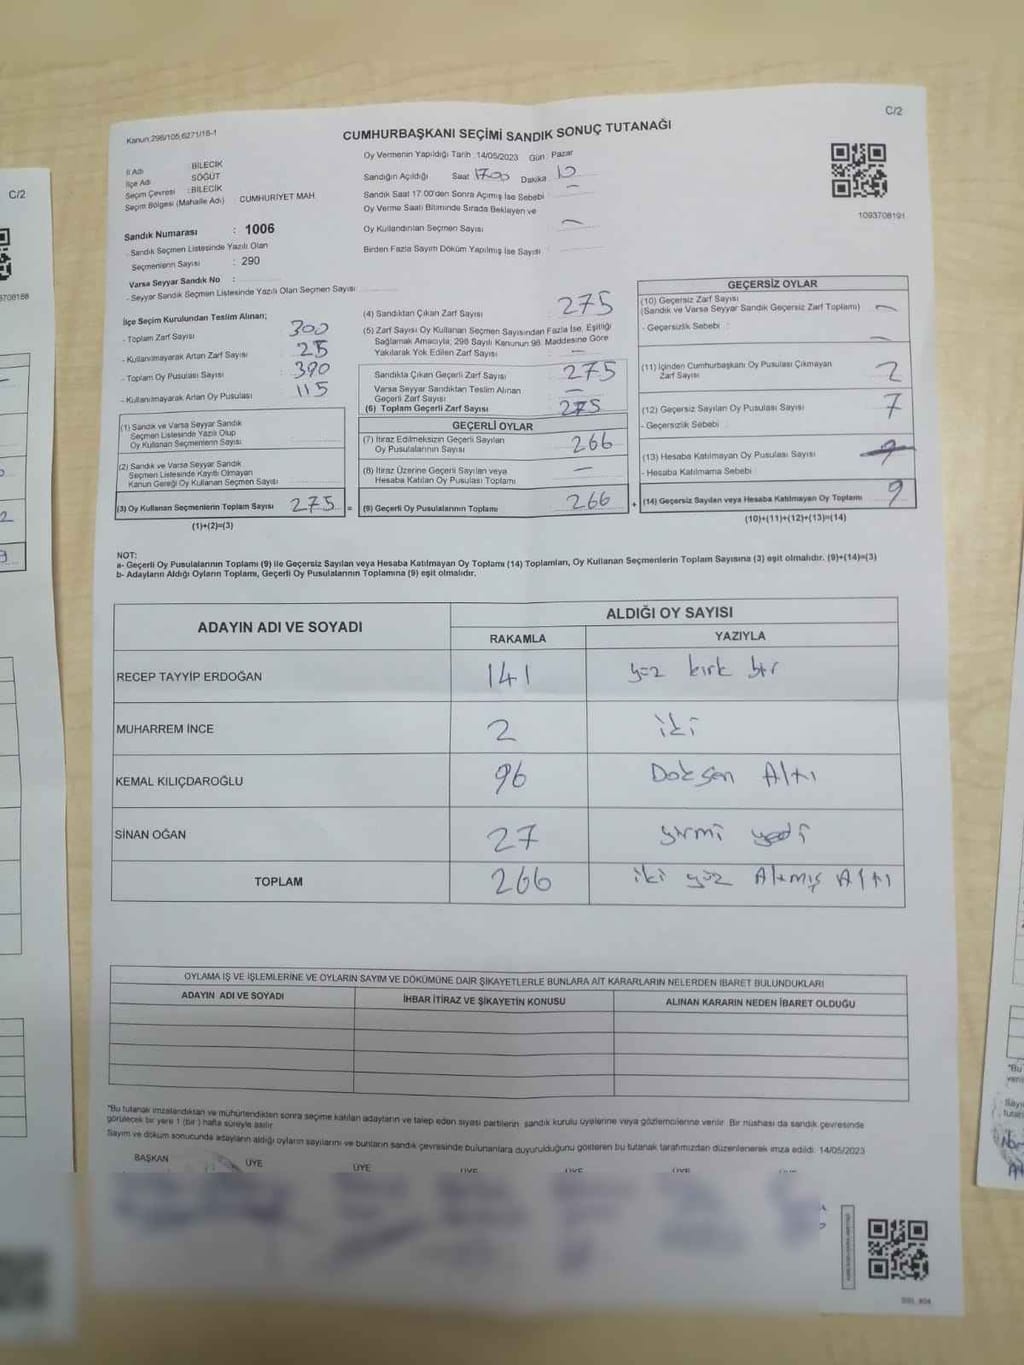 C/2
Kanun:298/105,6271/18-1
CUMHURBAŞKANI SEÇİMİ SANDIK SONUÇ TUTANAĞI
İl Adı : BİLECİK
İlçe Adı SÖĞÜT
Seçim Çevresi : BİLECİK
Seçim Bölgesi (Mahalle Adı) CUMHURİYET MAH
Oy Vermenin Yapıldığı Tarih : 14/05/2023 Gün : Pazar
Sandığın Açıldığı Saat 17:00 Dakika 10
Sandık Saat 17.00'den Sonra Açılmış İse Sebebi
Oy Verme Saati Bitiminde Sırada Bekleyen ve
Oy Kullandırılan Seçmen Sayısı
Birden Fazla Sayım Döküm Yapılmış İse Sayısı
1093708191
Sandık Numarası : 1006
- Sandık Seçmen Listesinde Yazılı Olan
Seçmenlerin Sayısı : 290
Varsa Seyyar Sandık No :
- Seyyar Sandık Seçmen Listesinde Yazılı Olan Seçmen Sayısı
İlçe Seçim Kurulundan Teslim Alınan;
- Toplam Zarf Sayısı : 300
- Kullanılmayarak Artan Zarf Sayısı : 25
- Toplam Oy Pusulası Sayısı : 390
- Kullanılmayarak Artan Oy Pusulası : 115
(1) Sandık ve Varsa Seyyar Sandık
Seçmen Listesinde Yazılı Olup
Oy Kullanan Seçmenlerin Sayısı
(2) Sandık ve Varsa Seyyar Sandık
Seçmen Listesinde Kayıtlı Olmayan
Kanun Gereği Oy Kullanan Seçmen Sayısı
(3) Oy Kullanan Seçmenlerin Toplam Sayısı 275 =
(1)+(2)=(3)
(4) Sandıktan Çıkan Zarf Sayısı 275
(5) Zarf Sayısı Oy Kullanan Seçmen Sayısından Fazla İse, Eşitliği
Sağlamak Amacıyla, 298 Sayılı Kanunun 98. Maddesine Göre
Yakılarak Yok Edilen Zarf Sayısı —
Sandıkta Çıkan Geçerli Zarf Sayısı 275
Varsa Seyyar Sandıktan Teslim Alınan
Geçerli Zarf Sayısı —
(6) Toplam Geçerli Zarf Sayısı 275
GEÇERLİ OYLAR
(7) İtiraz Edilmeksizin Geçerli Sayılan
Oy Pusulalarının Sayısı 266
(8) İtiraz Üzerine Geçerli Sayılan veya
Hesaba Katılan Oy Pusulası Toplamı —
(9) Geçerli Oy Pusulalarının Toplamı 266 +
GEÇERSİZ OYLAR
(10) Geçersiz Zarf Sayısı
(Sandık ve Varsa Seyyar Sandık Geçersiz Zarf Toplamı) —
- Geçersizlik Sebebi : —
(11) İçinden Cumhurbaşkanı Oy Pusulası Çıkmayan
Zarf Sayısı 2
(12) Geçersiz Sayılan Oy Pusulası Sayısı 7
- Geçersizlik Sebebi
(13) Hesaba Katılmayan Oy Pusulası Sayısı
- Hesaba Katılmama Sebebi
(14) Geçersiz Sayılan veya Hesaba Katılmayan Oy Toplamı 9
(10)+(11)+(12)+(13)=(14)
NOT:
a- Geçerli Oy Pusulalarının Toplamı (9) ile Geçersiz Sayılan veya Hesaba Katılmayan Oy Toplamı (14) Toplamları, Oy Kullanan Seçmenlerin Toplam Sayısına (3) eşit olmalıdır. (9)+(14)=(3)
b- Adayların Aldığı Oyların Toplamı, Geçerli Oy Pusulalarının Toplamına (9) eşit olmalıdır.
ADAYIN ADI VE SOYADI
ALDIĞI OY SAYISI
RAKAMLA YAZIYLA
RECEP TAYYİP ERDOĞAN 141 yüz kırk bir
MUHARREM İNCE 2 iki
KEMAL KILIÇDAROĞLU 96 Doksan Altı
SİNAN OĞAN 27 yirmi yedi
TOPLAM 266 iki yüz Altmış Altı
OYLAMA İŞ VE İŞLEMLERİNE VE OYLARIN SAYIM VE DÖKÜMÜNE DAİR ŞİKAYETLERLE BUNLARA AİT KARARLARIN NELERDEN İBARET BULUNDUKLARI
ADAYIN ADI VE SOYADI İHBAR İTİRAZ VE ŞİKAYETİN KONUSU ALINAN KARARIN NEDEN İBARET OLDUĞU
"Bu tutanak imzalandıktan ve mühürlendikten sonra seçime katılan adayların ve talep eden siyasi partilerin sandık kurulu üyelerine veya gözlemcilerine verilir. Bir nüshası da sandık çevresinde
görülecek bir yere 1 (bir) hafta süreyle asılır.
Sayım ve döküm sonucunda adayların aldığı oyların sayılarını ve bunların sandık çevresinde bulunanlara duyurulduğunu gösteren bu tutanak tarafımızdan düzenlenerek imza edildi. 14/05/2023
BAŞKAN ÜYE ÜYE ÜYE ÜYE ÜYE
C/2
3708188